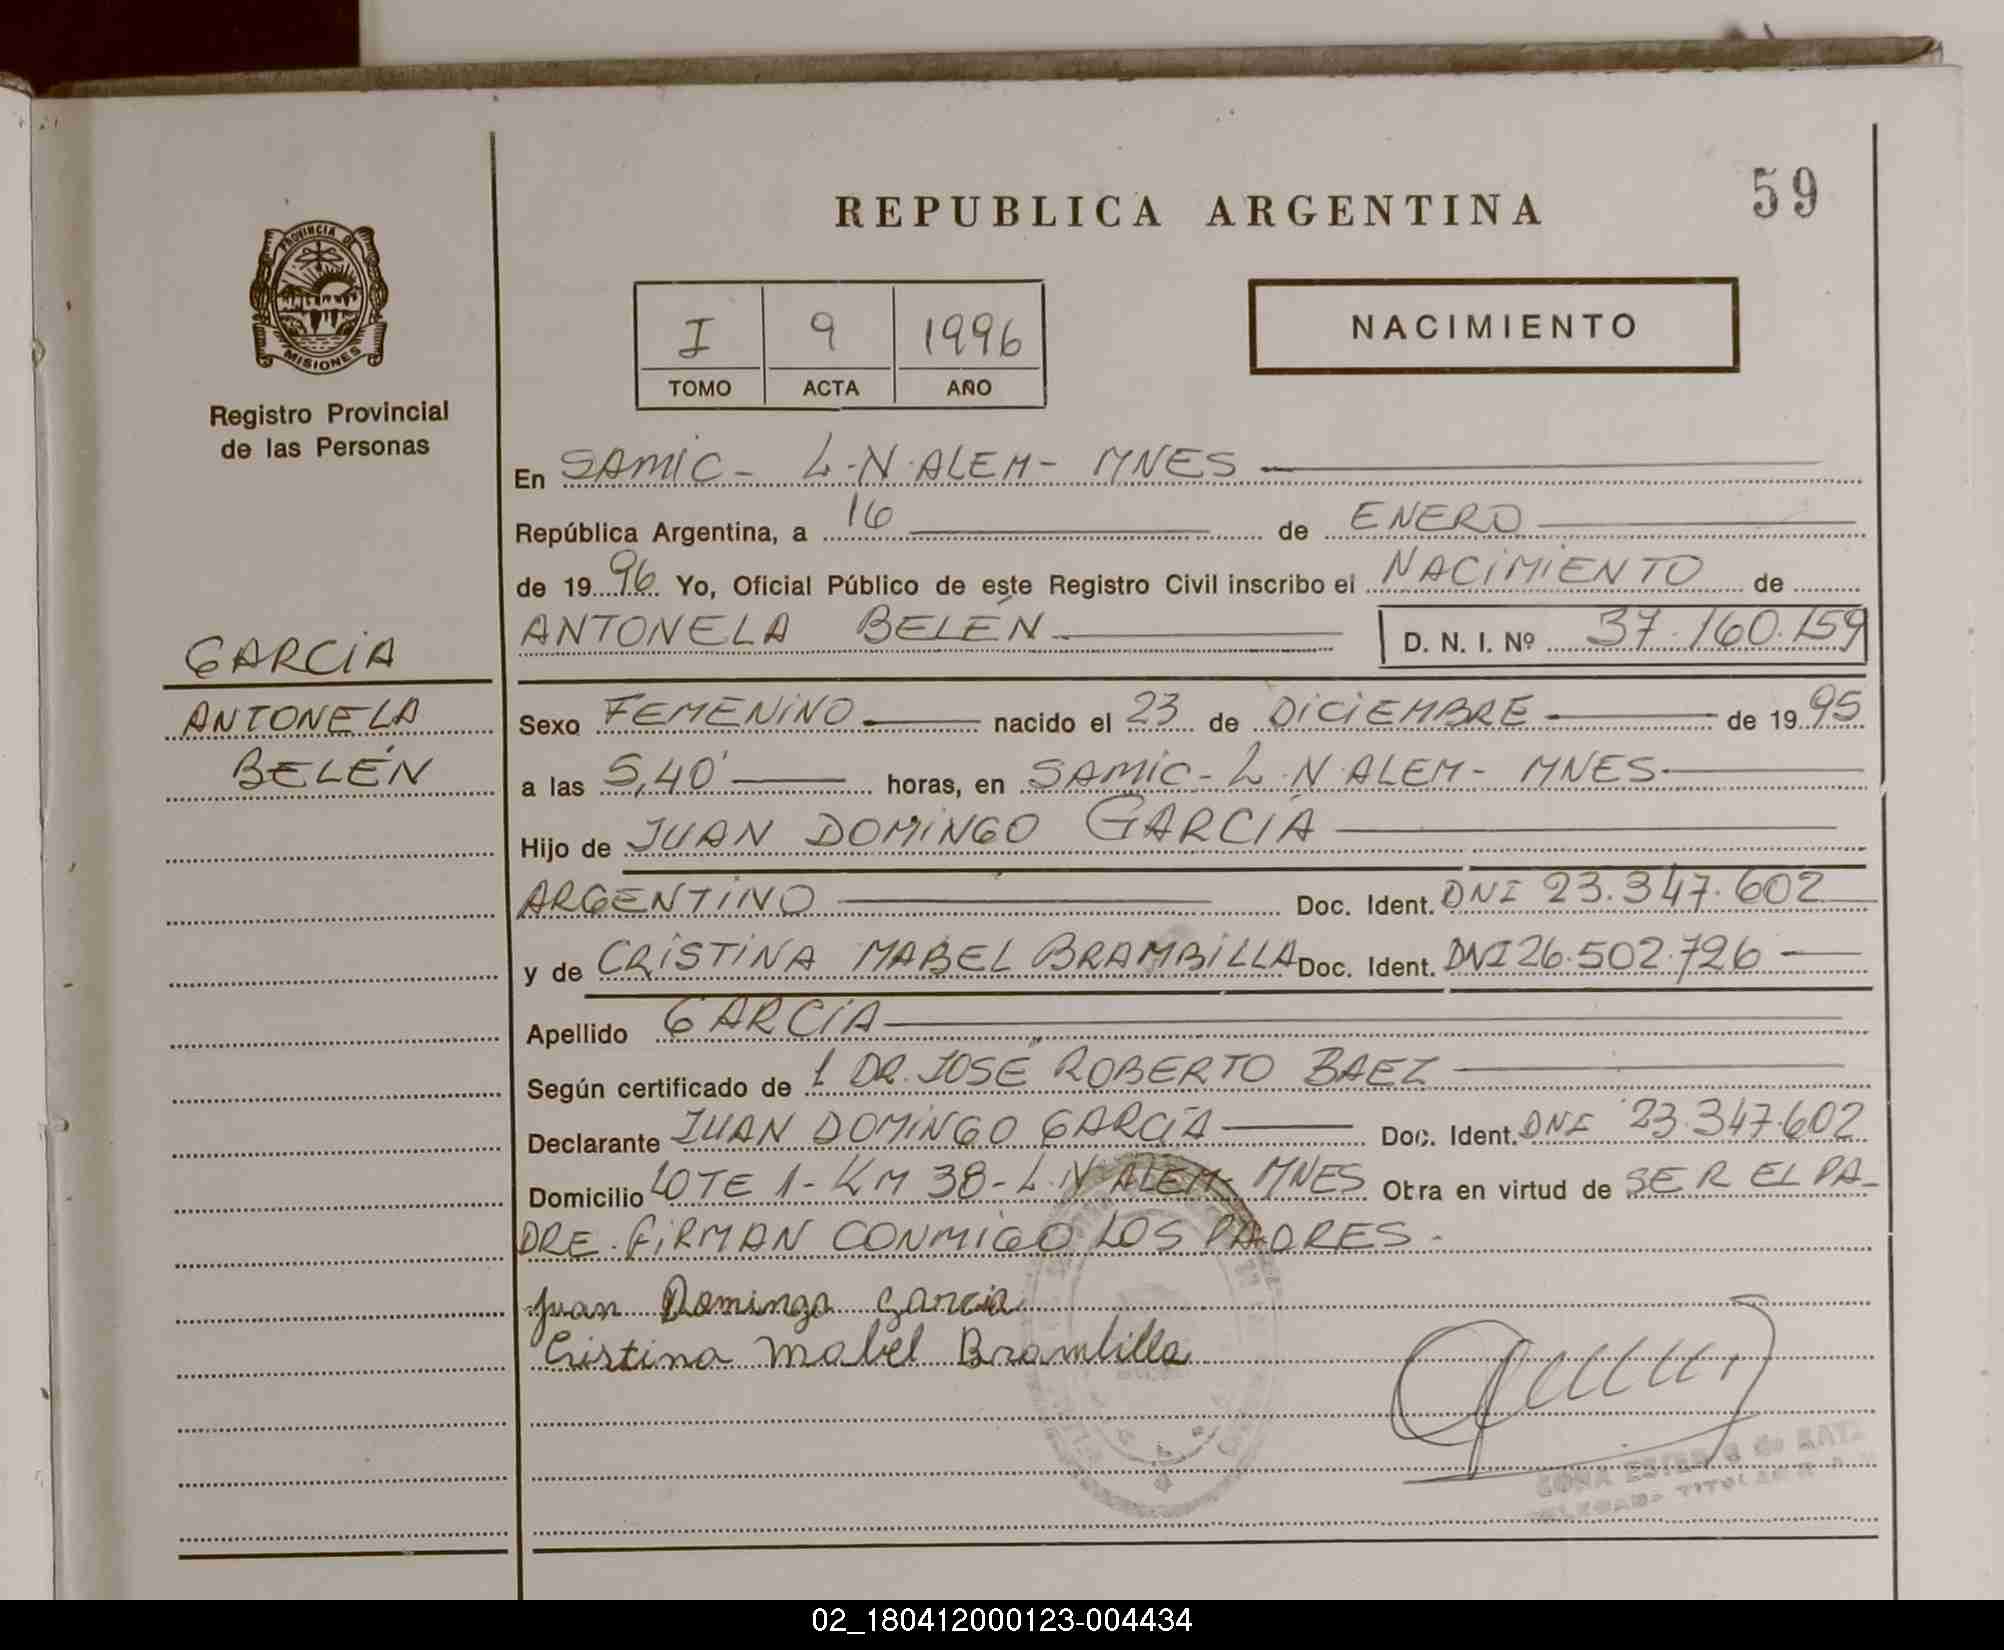 REPUBLICA ARGENTINA
59
PROVINCIA DE
MISIONES
Registro Provincial
de las Personas
I 9 1996
TOMO ACTA AÑO
NACIMIENTO
En SAMIC- L.N.ALEM- MNES
República Argentina, a 16 de ENERO
de 19 96 Yo, Oficial Público de este Registro Civil inscribo el NACIMIENTO de
ANTONELA BELÉN D. N. I. Nº 37.160.159
GARCIA
ANTONELA
BELÉN
Sexo FEMENINO nacido el 23 de DICIEMBRE de 19 95
a las 5,40' horas, en SAMIC- L.N.ALEM- MNES
Hijo de JUAN DOMINGO GARCIA
ARGENTINO Doc. Ident. DNI 23.347.602
y de CRISTINA MABEL BRAMBILLA Doc. Ident. DNI 26.502.726
Apellido GARCIA
Según certificado de 1 DR. JOSÉ ROBERTO BAEZ
Declarante JUAN DOMINGO GARCIA Doc. Ident. DNI 23.347.602
Domicilio LOTE 1- KM 38- L.N ALEM- MNES Obra en virtud de SER EL PA-
DRE. FIRMAN CONMIGO LOS PADRES.
Juan Domingo Garcia
Cristina Mabel Brambilla
02_180412000123-004434